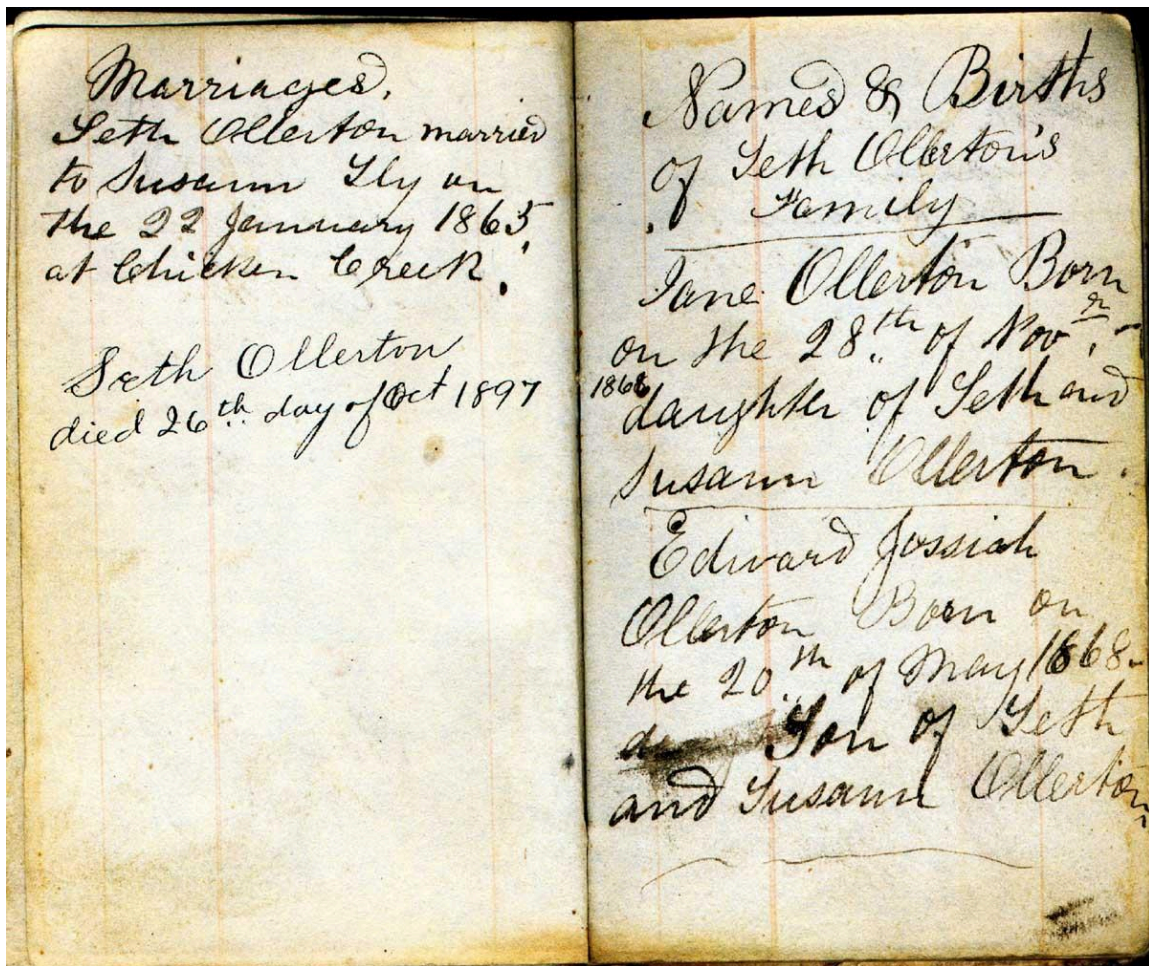 Marriages.
Seth Ollerton married
to Susann on
the 22 January 1865
at Chicken Creek.
Seth Ollerton
died 26th day of Oct 1897
Names & Births
of Seth Ollerton's
Family
Jane Ollerton Born
on the 28th of Novr.
daughter of Seth and
Susann Ollerton.
Edward Jossiah
Ollerton Born on
the 20th of May 1868
Son of Seth
and Susann Ollerton